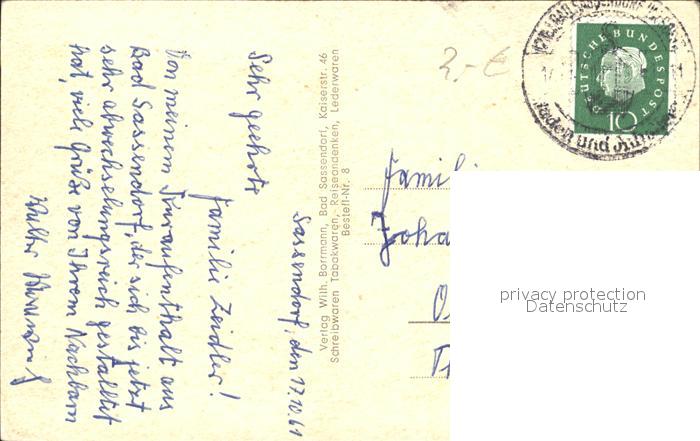 Sassendorf, den 17.10.61
Sehr geehrte
Familie Zeidler!
Von meinem Kuraufenthalt aus
Bad Sassendorf, der sich bis jetzt
sehr abwechselungsreich gestalltet
hat, viele Grüße von Ihrem Nachbarn
Walter
Verlag Wilh. Borrmann, Bad Sassendorf, Kaiserstr. 46
Schreibwaren Tabakwaren, Reiseandenken, Lederwaren
Bestell-Nr. 8
2,- €
BAD SASSENDORF
baden und
DEUTSCHE BUNDESPOST
10
Famili
Joha
privacy protection
Datenschutz